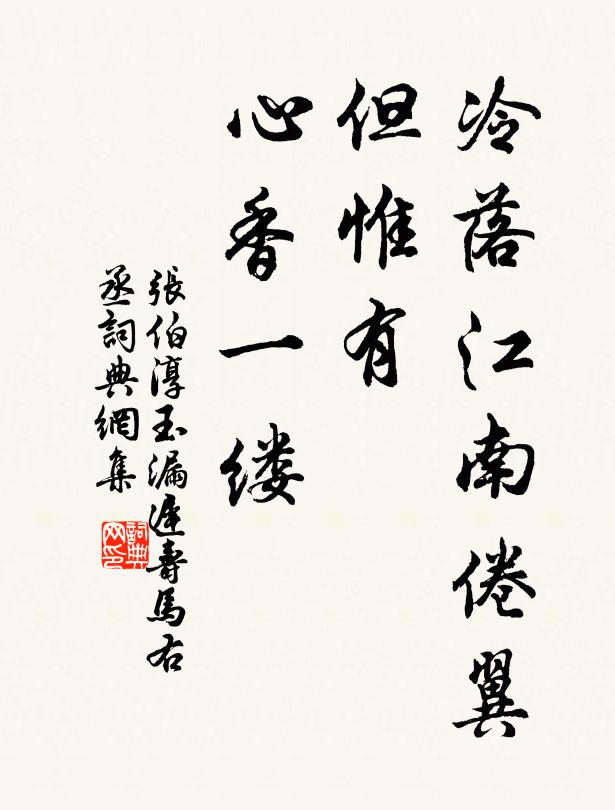 冷落江南倦翼
但惟有
心香一缕
張伯淳玉漏遲壽馬右
丞詞典網集
詞典
网印